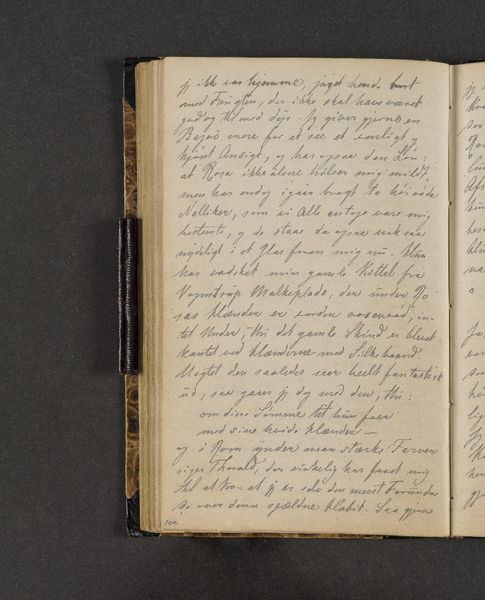 jeg ikke var hjemme, jaget hende bort
med Frugten, der ikke skal have været
god og tilmed dyr. Jeg giver gjerne en
Bajoc mere for at see et venligt og
kjønt Ansigt, og har ogsaa den Løn:
at Rosa ikke alene hilser mig mildt,
men har endog igaar bragt to høirøde
Nelliker, som vi Alle antoge vare mig
bestemte, og de staae da ogsaa nok saa
nydeligt i et Glas foran mig nu. Hun
har vadsket min gamle Kittel fra
Malkeplads, der under Ro
sas Hænder er vorden rosenrød, in-
tet Under, thi det gamle Skind er blevet
kantet ved Hænderne med Silkebaand.
Meget den saaledes seer heelt fantastisk
ud, saa gaaer jeg dog med den, thi:
om disse Sømme tit hun foer
med sine hvide Hænder —
og i Rom ynder man stærke Farver
siger Thorald, der virkelig har faaet mig
til at troe at jeg er selv den meest Forundre
de over denne sjældne Saa gjerne
100